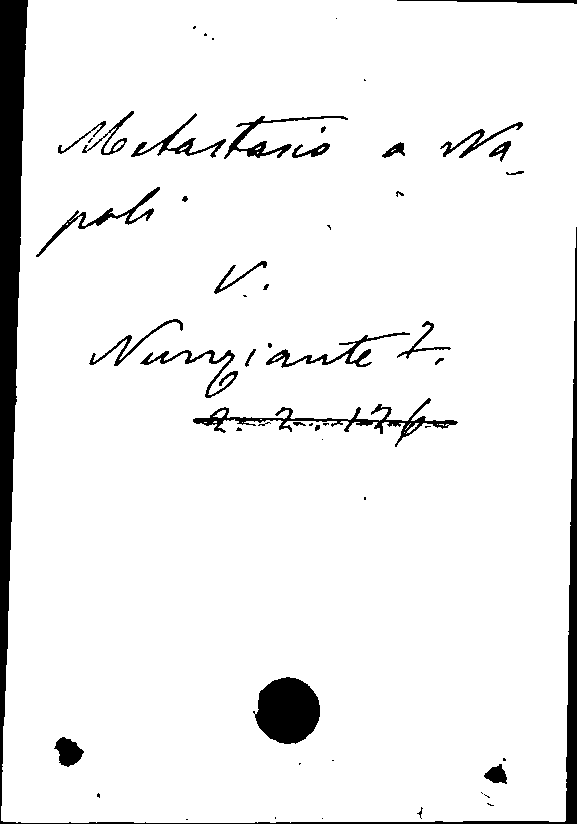 Metastasio a Na
poli
V.
Nunziante F.
2. 2. 126